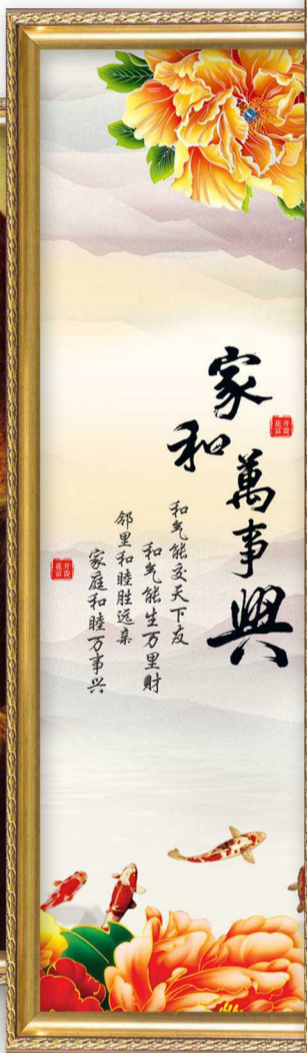 家和萬事興
花开富贵
和气能交天下友
和气能生万里财
邻里和睦胜远亲
家庭和睦万事兴
花开富贵